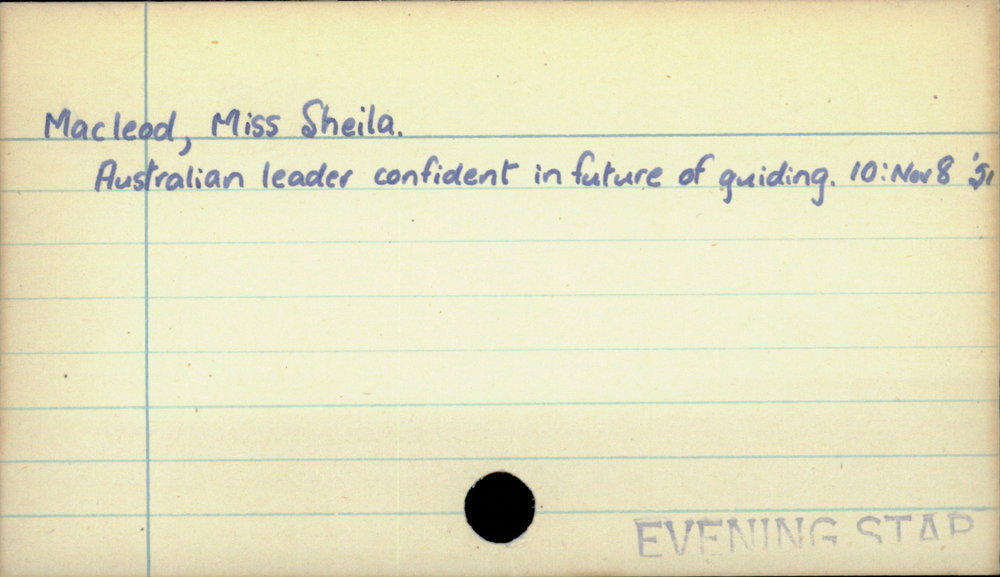 Macleod, Miss Sheila.
Australian leader confident in future of guiding. 10:Nov 8 '51
EVENING STAR